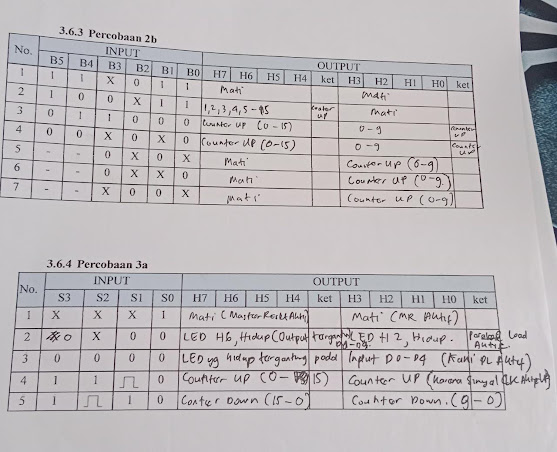 3.6.3 Percobaan 2b
No. INPUT OUTPUT
B5 B4 B3 B2 B1 B0 H7 H6 H5 H4 ket H3 H2 H1 H0 ket
1 1 1 X 0 1 1 Mati Mati
2 1 0 0 X 1 1 1,2,3,4,5-15 Counter UP Mati
3 0 1 1 0 0 0 Counter UP (0-15) 0-9 Counter UP
4 0 0 X 0 X 0 Counter UP (0-15) 0-9 Counter UP
5 - - 0 X 0 X Mati Counter UP (0-9)
6 - - 0 X X 0 Mati Counter UP (0-9)
7 - - X 0 0 X Mati Counter UP (0-9)
3.6.4 Percobaan 3a
No. INPUT OUTPUT
S3 S2 S1 S0 H7 H6 H5 H4 ket H3 H2 H1 H0 ket
1 X X X 1 Mati (Master Reset Aktif) Mati (MR Aktif)
2 0 X 0 0 LED H6, Hidup (Output LED H2, Hidup. Paralel Load Aktif
3 0 0 0 0 LED yg hidup tergantung pada Input D0-D9 (Kami PL Aktif)
4 1 1 0 Counter UP (0-15) Counter UP (Karena Sinyal
5 1 1 0 Conter Down (15-0) Counter Down. (9-0)